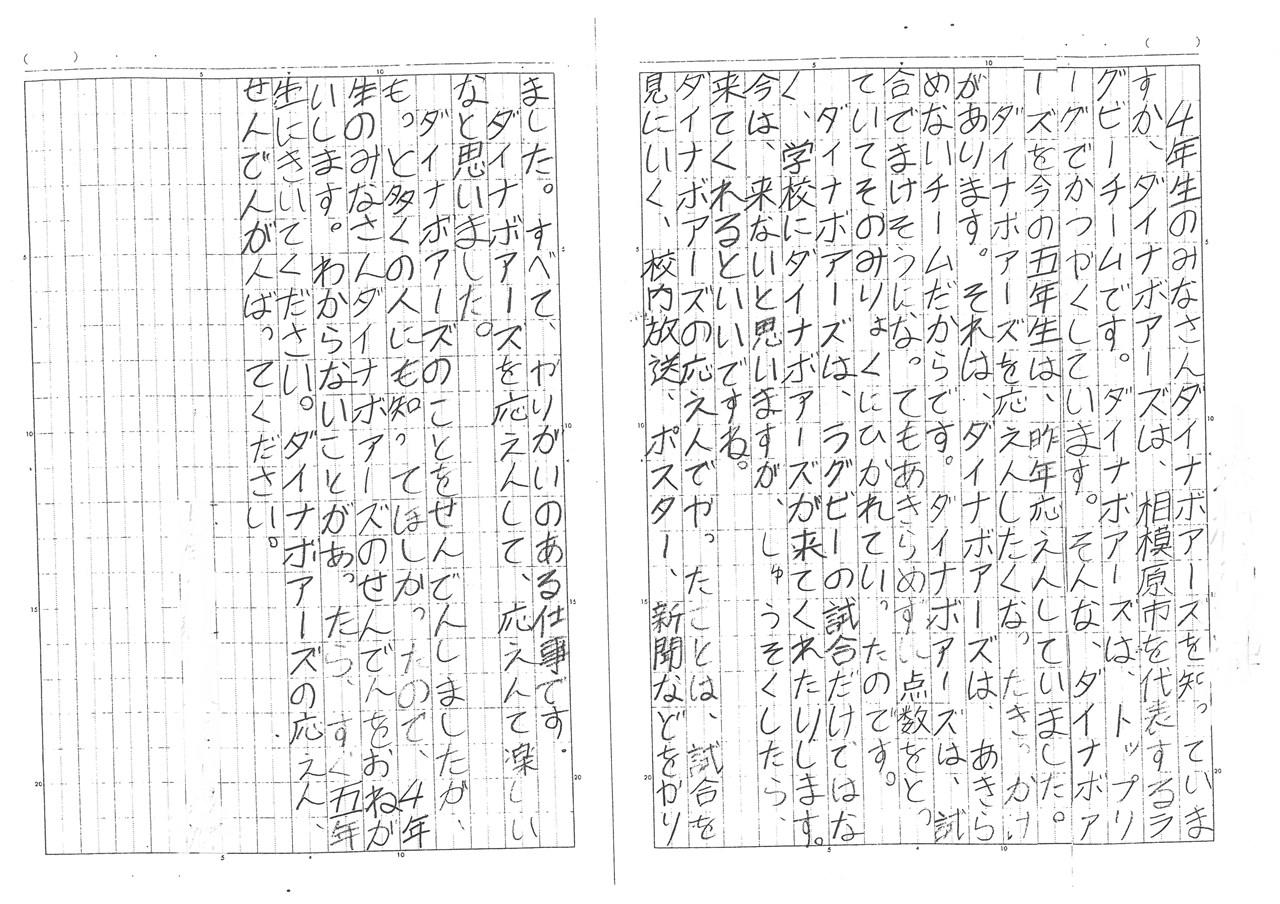 ４年生のみなさんダイナボアーズを知っていま
すか、ダイナボアーズは、相模原市を代表するラ
グビーチームです。ダイナボアーズは、トップリ
ーグでかつやくしています。そんな、ダイナボア
ーズを今の五年生は、昨年応えんしていました。
ダイナボアーズを応えんしたくなったきっかけ
があります。それは、ダイナボアーズは、あきら
めないチームだからです。ダイナボアーズは、試
合でまけそうになってもあきらめずに点数をとっ
ていてそのみりょくにひかれていったのです。
ダイナボアーズは、ラグビーの試合だけではな
く、学校にダイナボアーズが来てくれたりします。
今は、来ないと思いますが、しゅうそくしたら、
来てくれるといいですね。
ダイナボアーズの応えんでやったことは、試合を
見にいく、校内放送、ポスター、新聞などをかり
ました。すべて、やりがいのある仕事です。
ダイナボアーズを応えんして、応えんて楽しい
なと思いました。
ダイナボアーズのことをせんでんしましたが、
もっと多くの人にも知ってほしかったので、４年
生のみなさんダイナボアーズのせんでんをおねが
いします。わからないことがあったら、すぐ五年
生にきいてください。ダイナボアーズの応えん、
せんでんがんばってください。